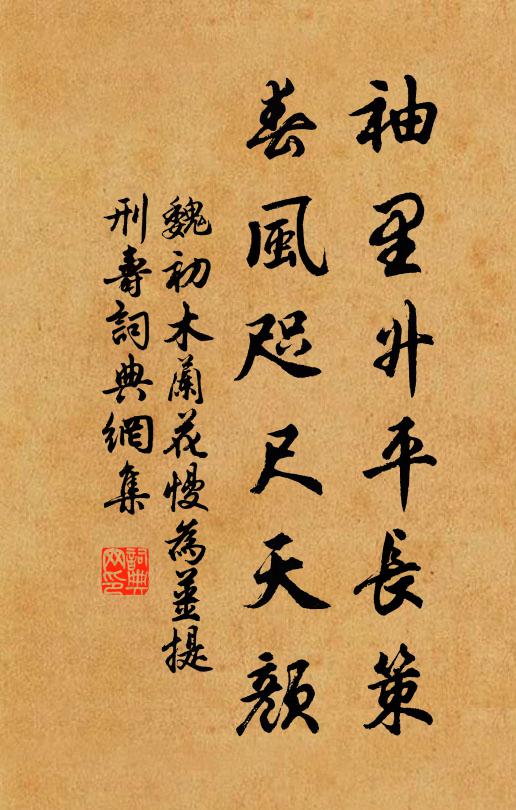 袖里升平長策
春風咫尺天顏
魏初木蘭花慢為薑提
刑壽詞典網集
詞典
网印